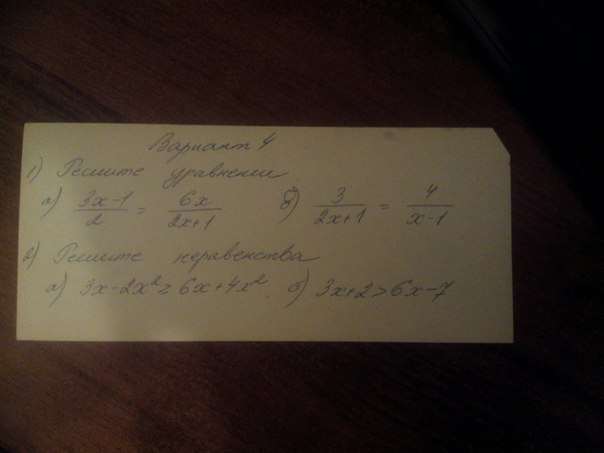 Вариант 4
1) Решите уравнении
а) (3x-1)/2 = 6x/(2x+1) б) 3/(2x+1) = 4/(x-1)
2) Решите неравенства
а) 3x-2x² ≥ 6x+4x² б) 3x+2>6x-7